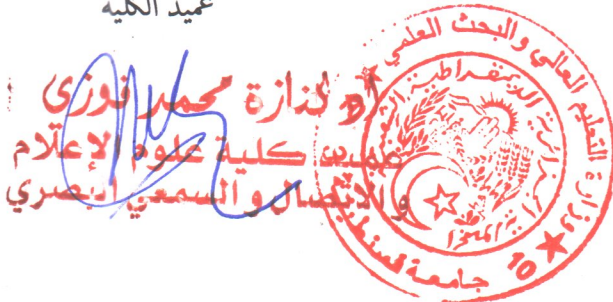 عميد الكلية
أ.د لنازة محمد فوزي
عميد كلية علوم الإعلام
والاتصال و السمعي البصري
وزارة التعليم العالي والبحث العلمي
الجمهورية الجزائرية الديمقراطية الشعبية
جامعة قسنطينة
10